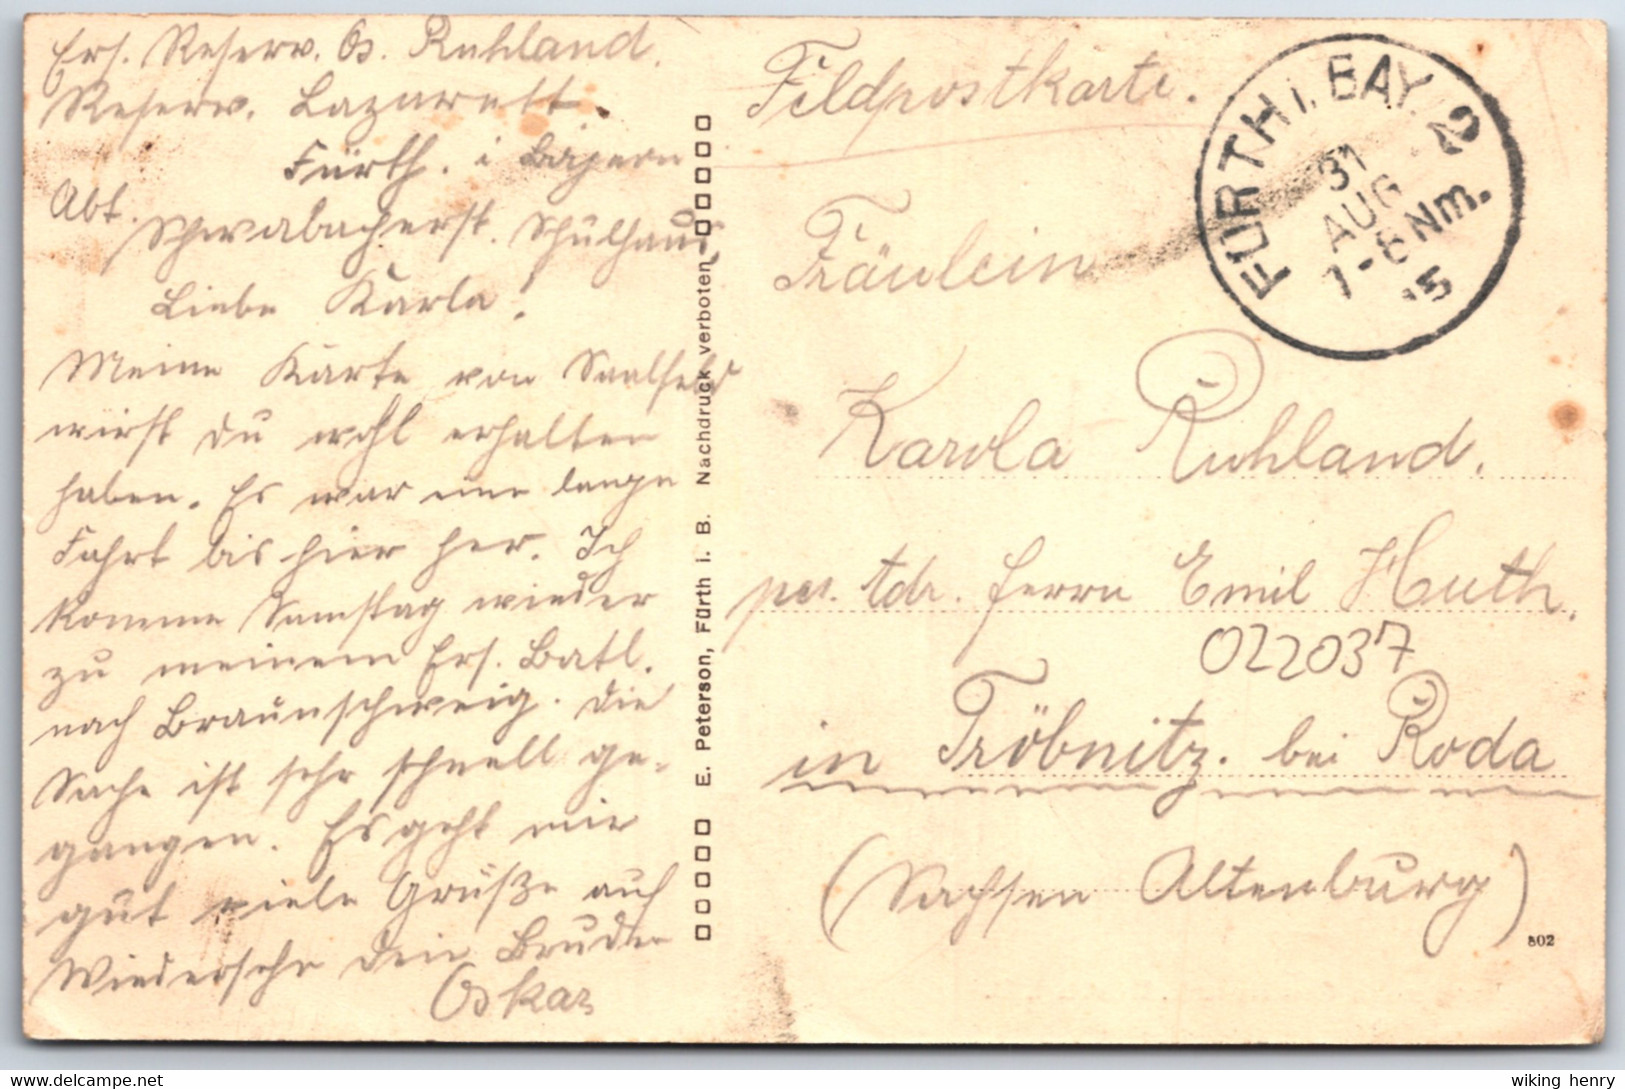 Ers. Reserv. Os. Ruhland.
Reserv. Lazarett.
Fürth. i Bayern
Abt. Schwabacherst. Schulhaus
Liebe Karla!
Meine Karte von Saalfeld
wirst du wohl erhalten
haben. Es war eine lange
Fahrt bis hier her. Ich
komme Samstag wieder
zu meinem Ers. Batl.
nach Braunschweig. Die
Sache ist sehr schnell ge-
gangen. Es geht mir
gut viele Grüße auf
Wiedersehn dein Bruder
Oskar
E. Peterson, Fürth i. B. Nachdruck verboten
Feldpostkarte.
FÜRTH i. BAY. 2
31
AUG
1-6 Nm.
15
Fräulein
Karola Ruhland.
per. Adr. Herrn Emil Huth.
022037
in Tröbnitz. bei Roda
(Sachsen Altenburg)
802
wiking henry